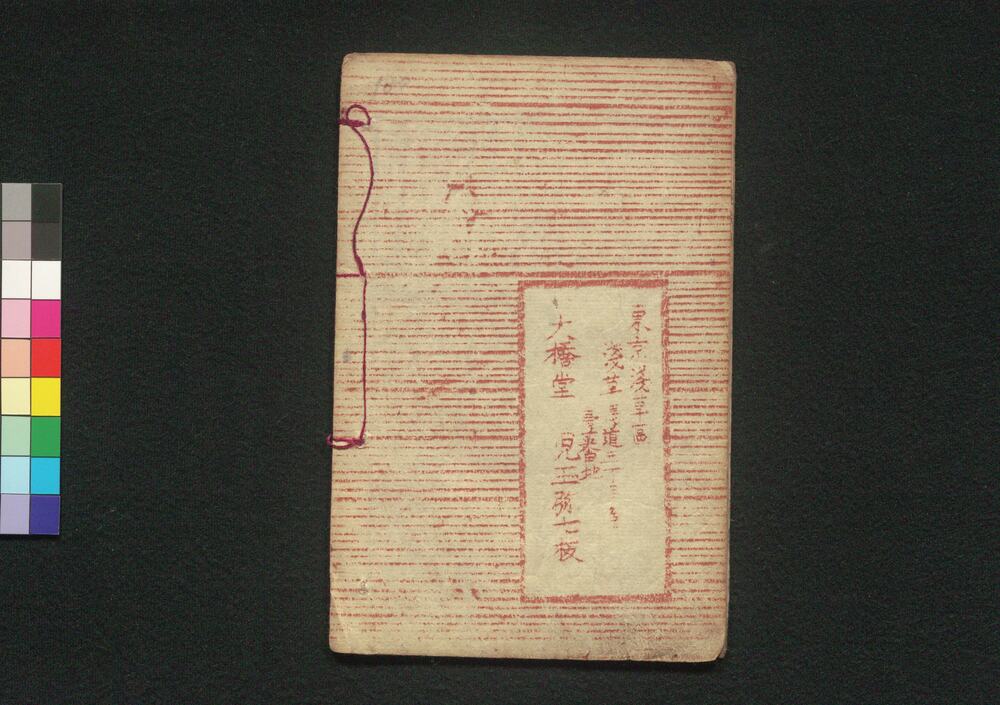 東京浅草區
浅草馬道二丁目
壹番地
大橋堂 児玉弥七板